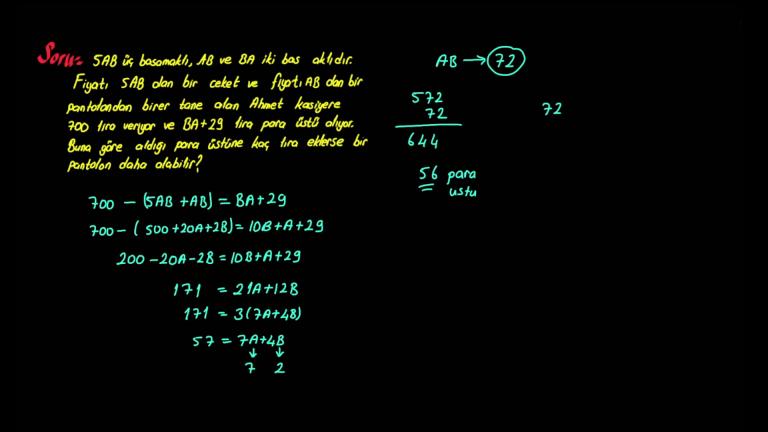 Soru:- 5AB üç basamaklı, AB ve BA iki bas aklıdır.
Fiyatı 5AB dan bir ceket ve fiyatı AB dan bir
pantalondan birer tane alan Ahmet kasiyere
700 lira veriyor ve BA+29 lira para üstü alıyor.
Buna göre aldığı para üstüne kaç lira eklerse bir
pantalon daha alabilir?
700 - (5AB + AB) = BA + 29
700 - ( 500 + 20A + 2B) = 10B + A + 29
200 - 20A - 2B = 10B + A + 29
171 = 21A + 12B
171 = 3(7A + 4B)
57 = 7A + 4B
↓ ↓
7 2
AB → 72
572
72
644
56 para
ustu
72